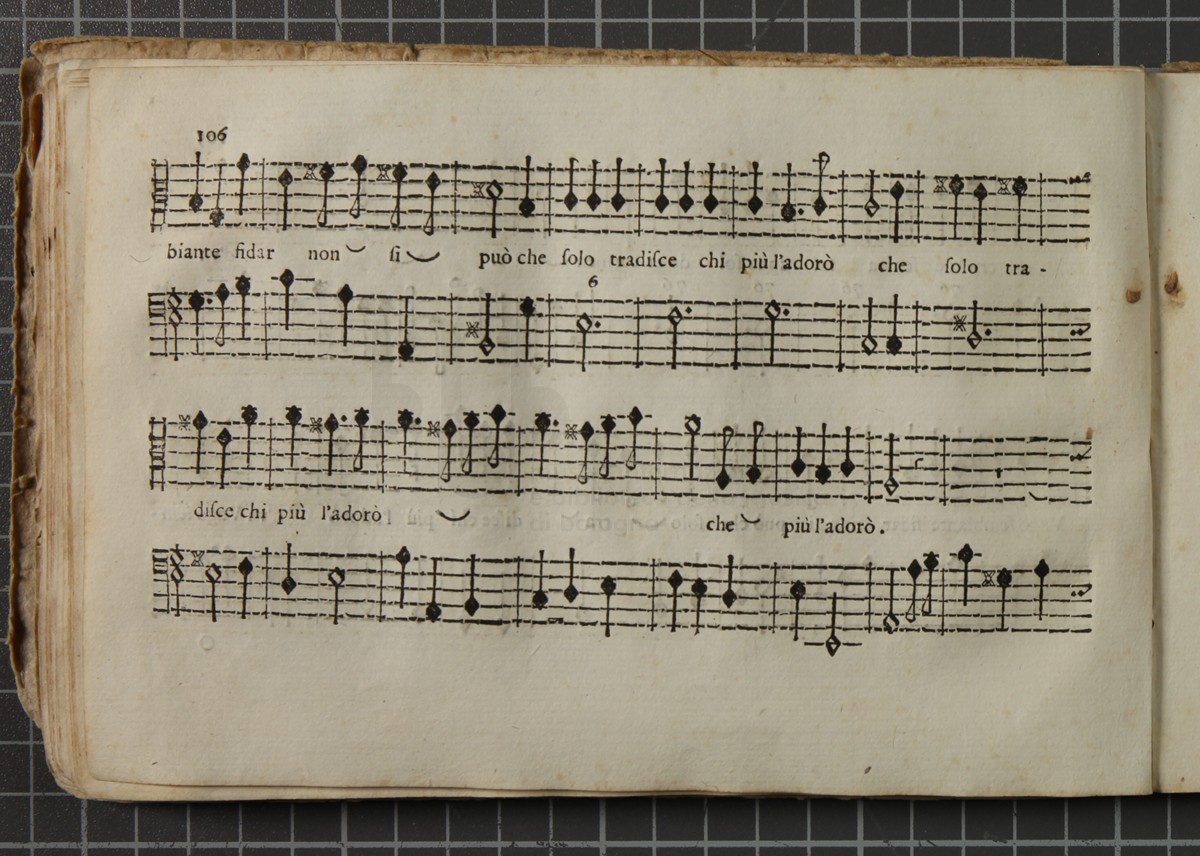 106
biante fidar non si può che ſolo tradiſce chi più l'adorò che ſolo tra-
6
diſce chi più l'adorò che più l'adorò.